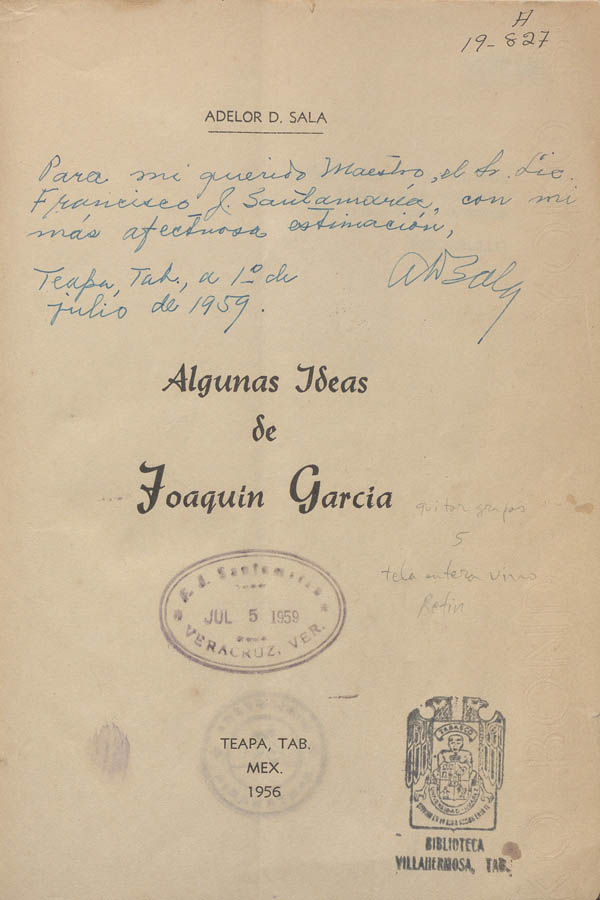 A
19-827
ADELOR D. SALA
Para mi querido Maestro, el Sr. Lic.
Francisco J. Santamaría, con mi
más afectuosa estimación,
Teapa, Tab., a 1º de
julio de 1959.
ADSala
Algunas Ideas
de
Joaquín García
quitar grapas
5
tela entera vino
F. J. Santamaría
JUL 5 1959
VERACRUZ, VER.
TEAPA, TAB.
MEX.
1956
TABASCO
BIBLIOTECA
VILLAHERMOSA, TAB.